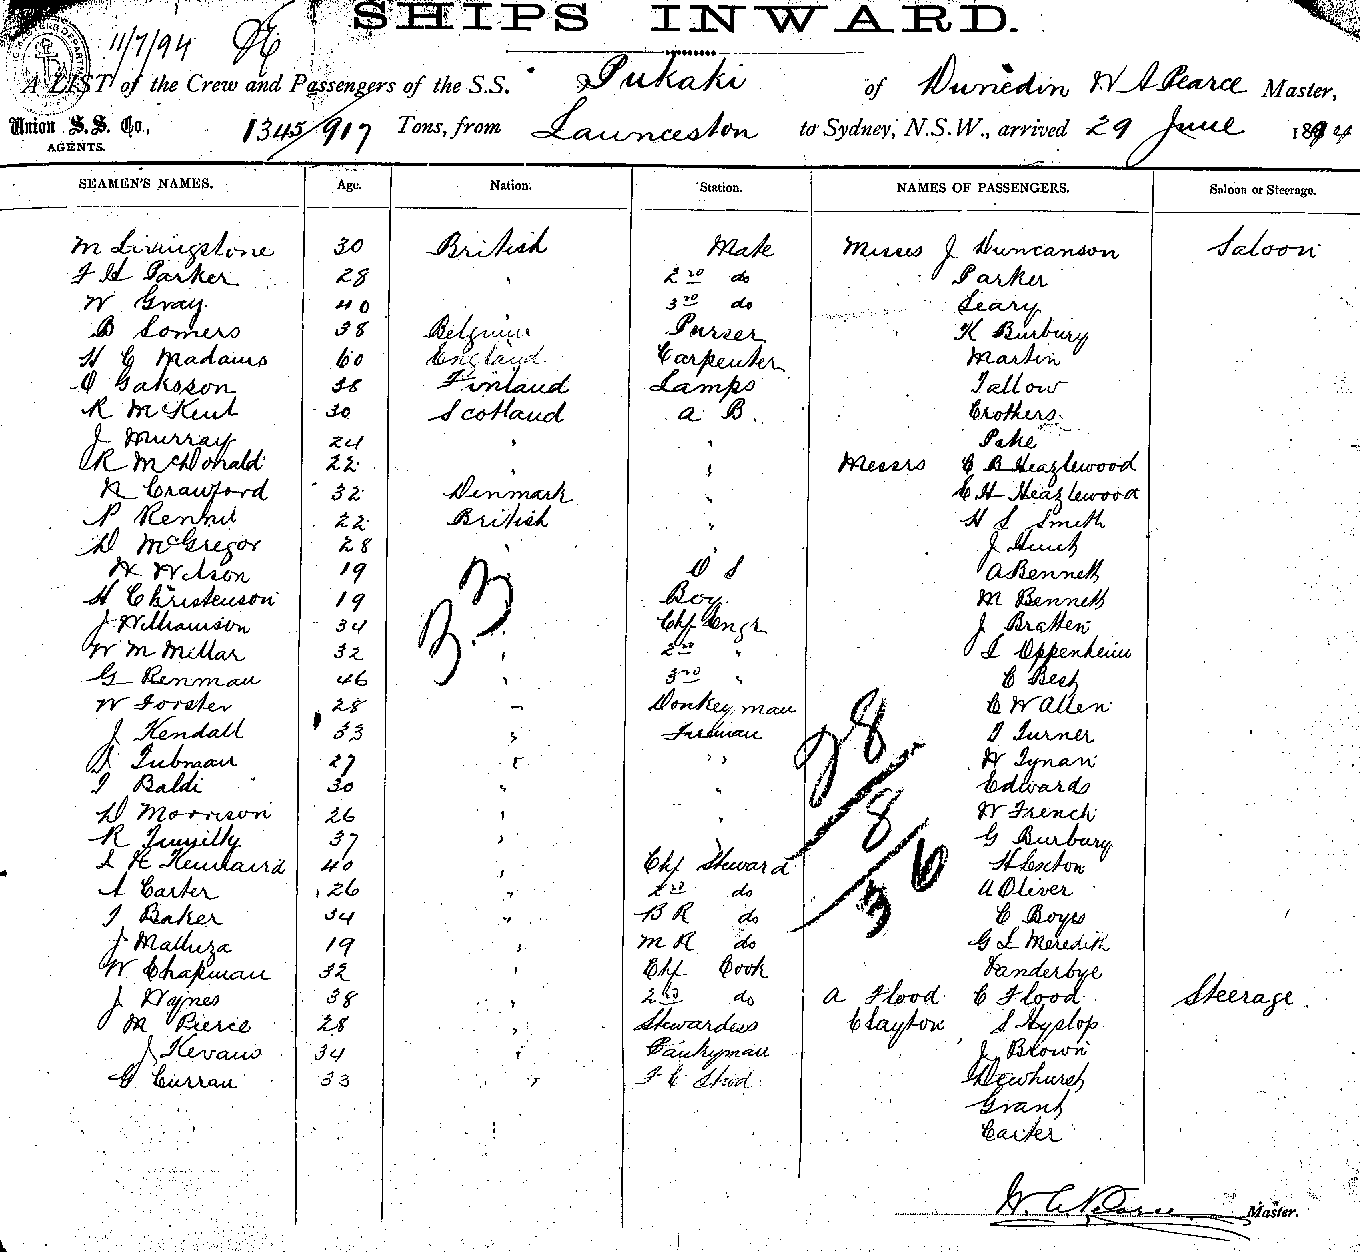 SHIPS INWARD.
11/7/94
A LIST of the Crew and Passengers of the S.S. Pukaki of Dunedin W A Pearce Master,
Union S.S. Co., AGENTS. 1345/917 Tons, from Launceston to Sydney, N.S.W., arrived 29 June 1894
SEAMEN'S NAMES. Age. Nation. Station. NAMES OF PASSENGERS. Saloon or Steerage.
M Livingstone 30 British Mate Misses J Duncanson Saloon
F H Parker 28 " 2nd do Parker
W Gray 40 3rd do Leary
B Somers 38 Belgium Purser K Burbury
H G Madams 60 England Carpenter Martin
O Gaksson 38 Finland Lamps Tallow
R McKent 30 Scotland A B. Crothers
J Murray 24 " " Pike
R McDonald 22 " Messrs C B Heazlewood
R Crawford 32 Denmark " C H Heazlewood
P Rennie 22 British " H S Smith
D McGregor 28 " J
W Wilson 19 O S A Bennett
H Christenson 19 Boy M Bennett
J Williamson 34 " Chf Engr J Bratten
W M Millar 32 " 2nd " L Oppenheim
G Renman 46 " 3rd " C Best
W Forster 28 " Donkeyman C W Allen
J Kendall 33 " Fireman T Turner
J Tubman 27 " " W Tynan
T Baldi 30 " " Edwards
D Morrison 26 " " W French
R 37 " G Burbury
L H Kennaird 40 " Chf Steward H Sexton
A Carter 26 " 2nd do A Oliver
T Baker 34 " B R do C Boyes
J Malluza 19 " M R do G L Meredith
W Chapman 32 " Chf Cook Vanderbye
J Haynes 38 " 2nd do A Flood C Flood Steerage.
M Pierce 28 " Stewardess Clayton S Hyslop
J Kevans 34 " Pantryman J Brown
G Curran 33 " F C Stwd Dewhurst
Grant
Carter
33
28
8
36
W. A. Pearce Master.